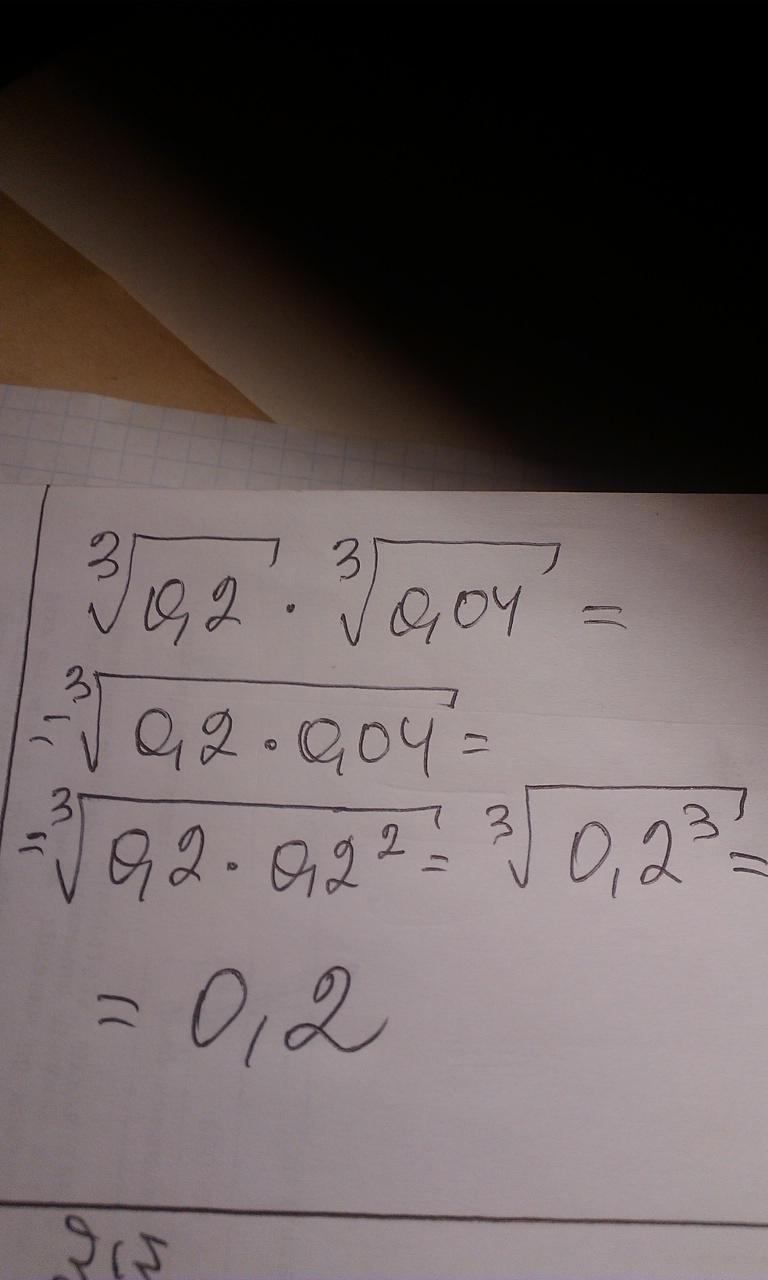 ∛0,2 · ∛0,04 =
= ∛0,2 · 0,04 =
= ∛0,2 · 0,2² = ∛0,2³ =
= 0,2